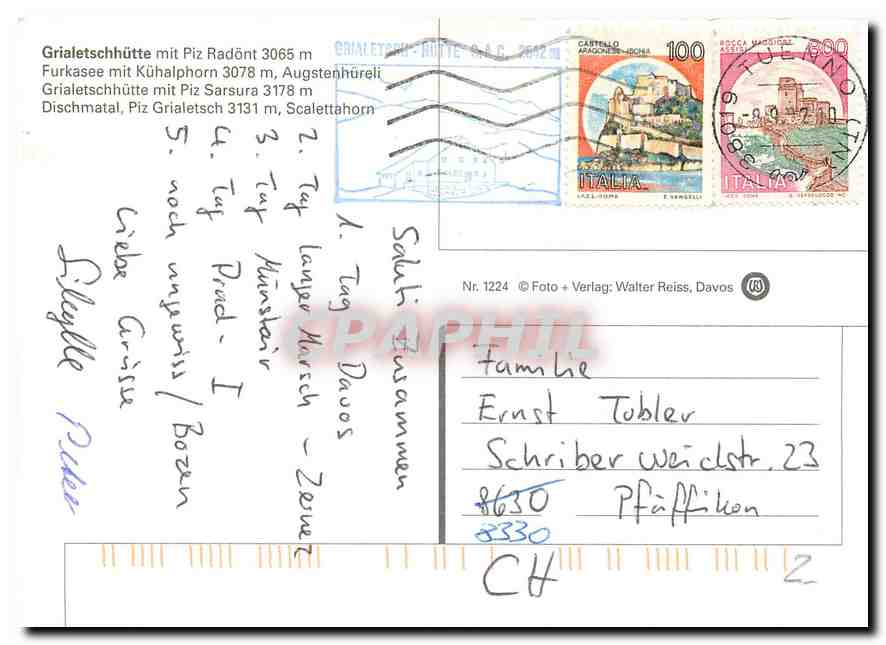 Grialetschhütte mit Piz Radönt 3065 m
Furkasee mit Kühalphorn 3078 m, Augstenhüreli
Grialetschhütte mit Piz Sarsura 3178 m
Dischmatal, Piz Grialetsch 3131 m, Scalettahorn
GRIALETSCH-HÜTTE S.A.C. 2542 m
CASTELLO
ARAGONESE-ISCHIA
100
ITALIA
I.P.Z.S.-ROMA
E. VANGELLI
ROCCA MAGGIORE
ASSISI
ITALIA
38019 TUENNO (TN)
Saluti Zusammen
1. Tag Davos
2. Tag langer Marsch - Zernez
3. Tag Münstair
4. Tag Prad - I
5. noch ungewiss / Bozen
Liebe Grüsse
Sibylle Peter
Nr. 1224 © Foto + Verlag: Walter Reiss, Davos
CPAPHIL
Familie
Ernst Tobler
Schriberweidstr. 23
8630 Pfäffikon
8330
CH
2.